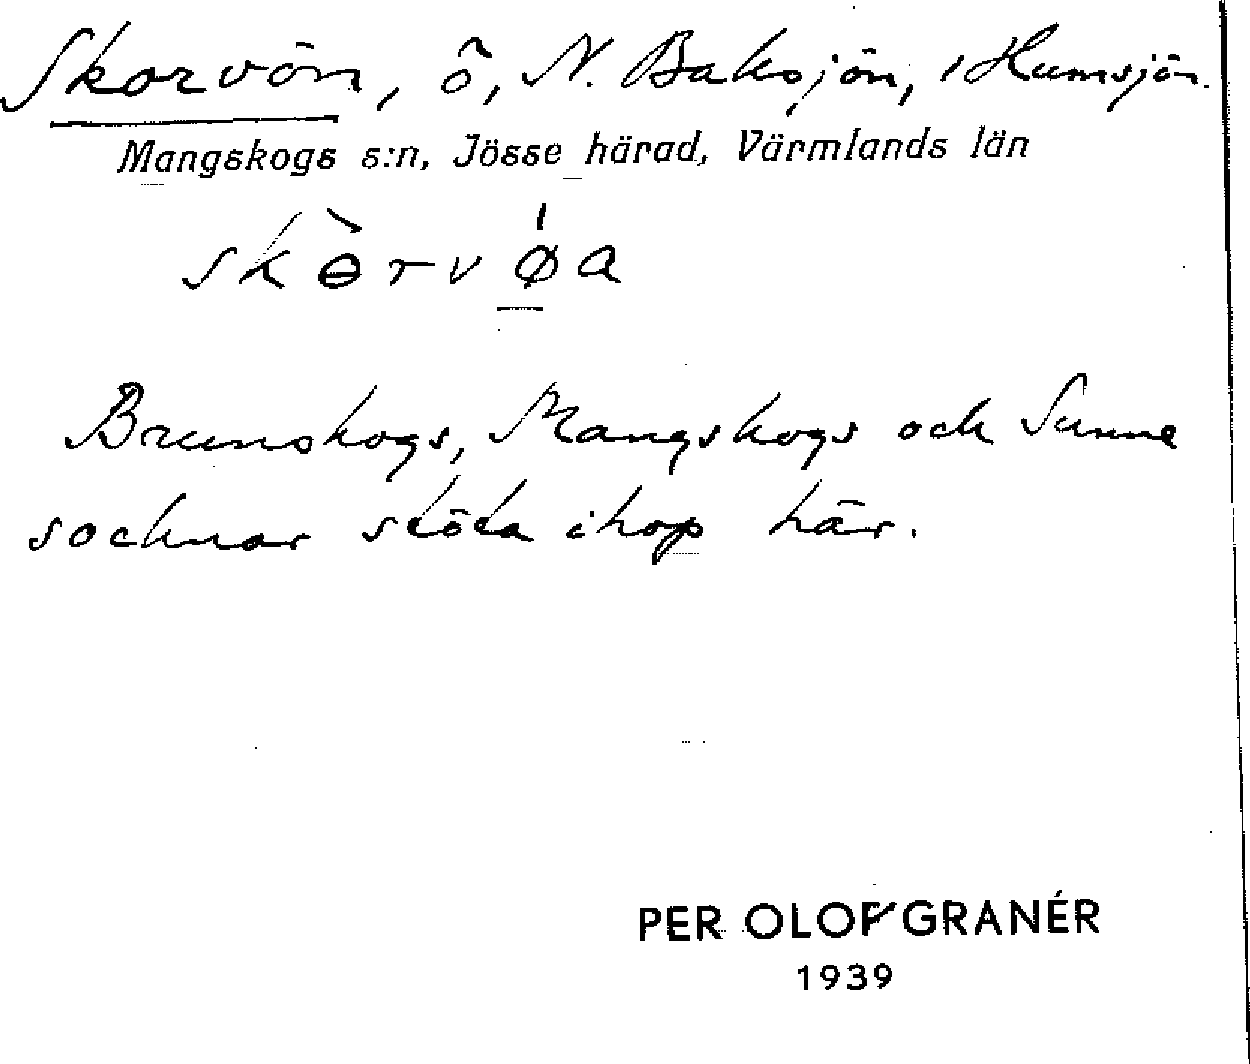 Skorvön, ö, N. Baksjön, i Humsjön.
Mangskogs s:n, Jösse härad, Värmlands län
skɵ̀rvǿa
Brunskogs, Mangskogs och Sunne
socknar stöta ihop här.
PER OLOF GRANÉR
1939